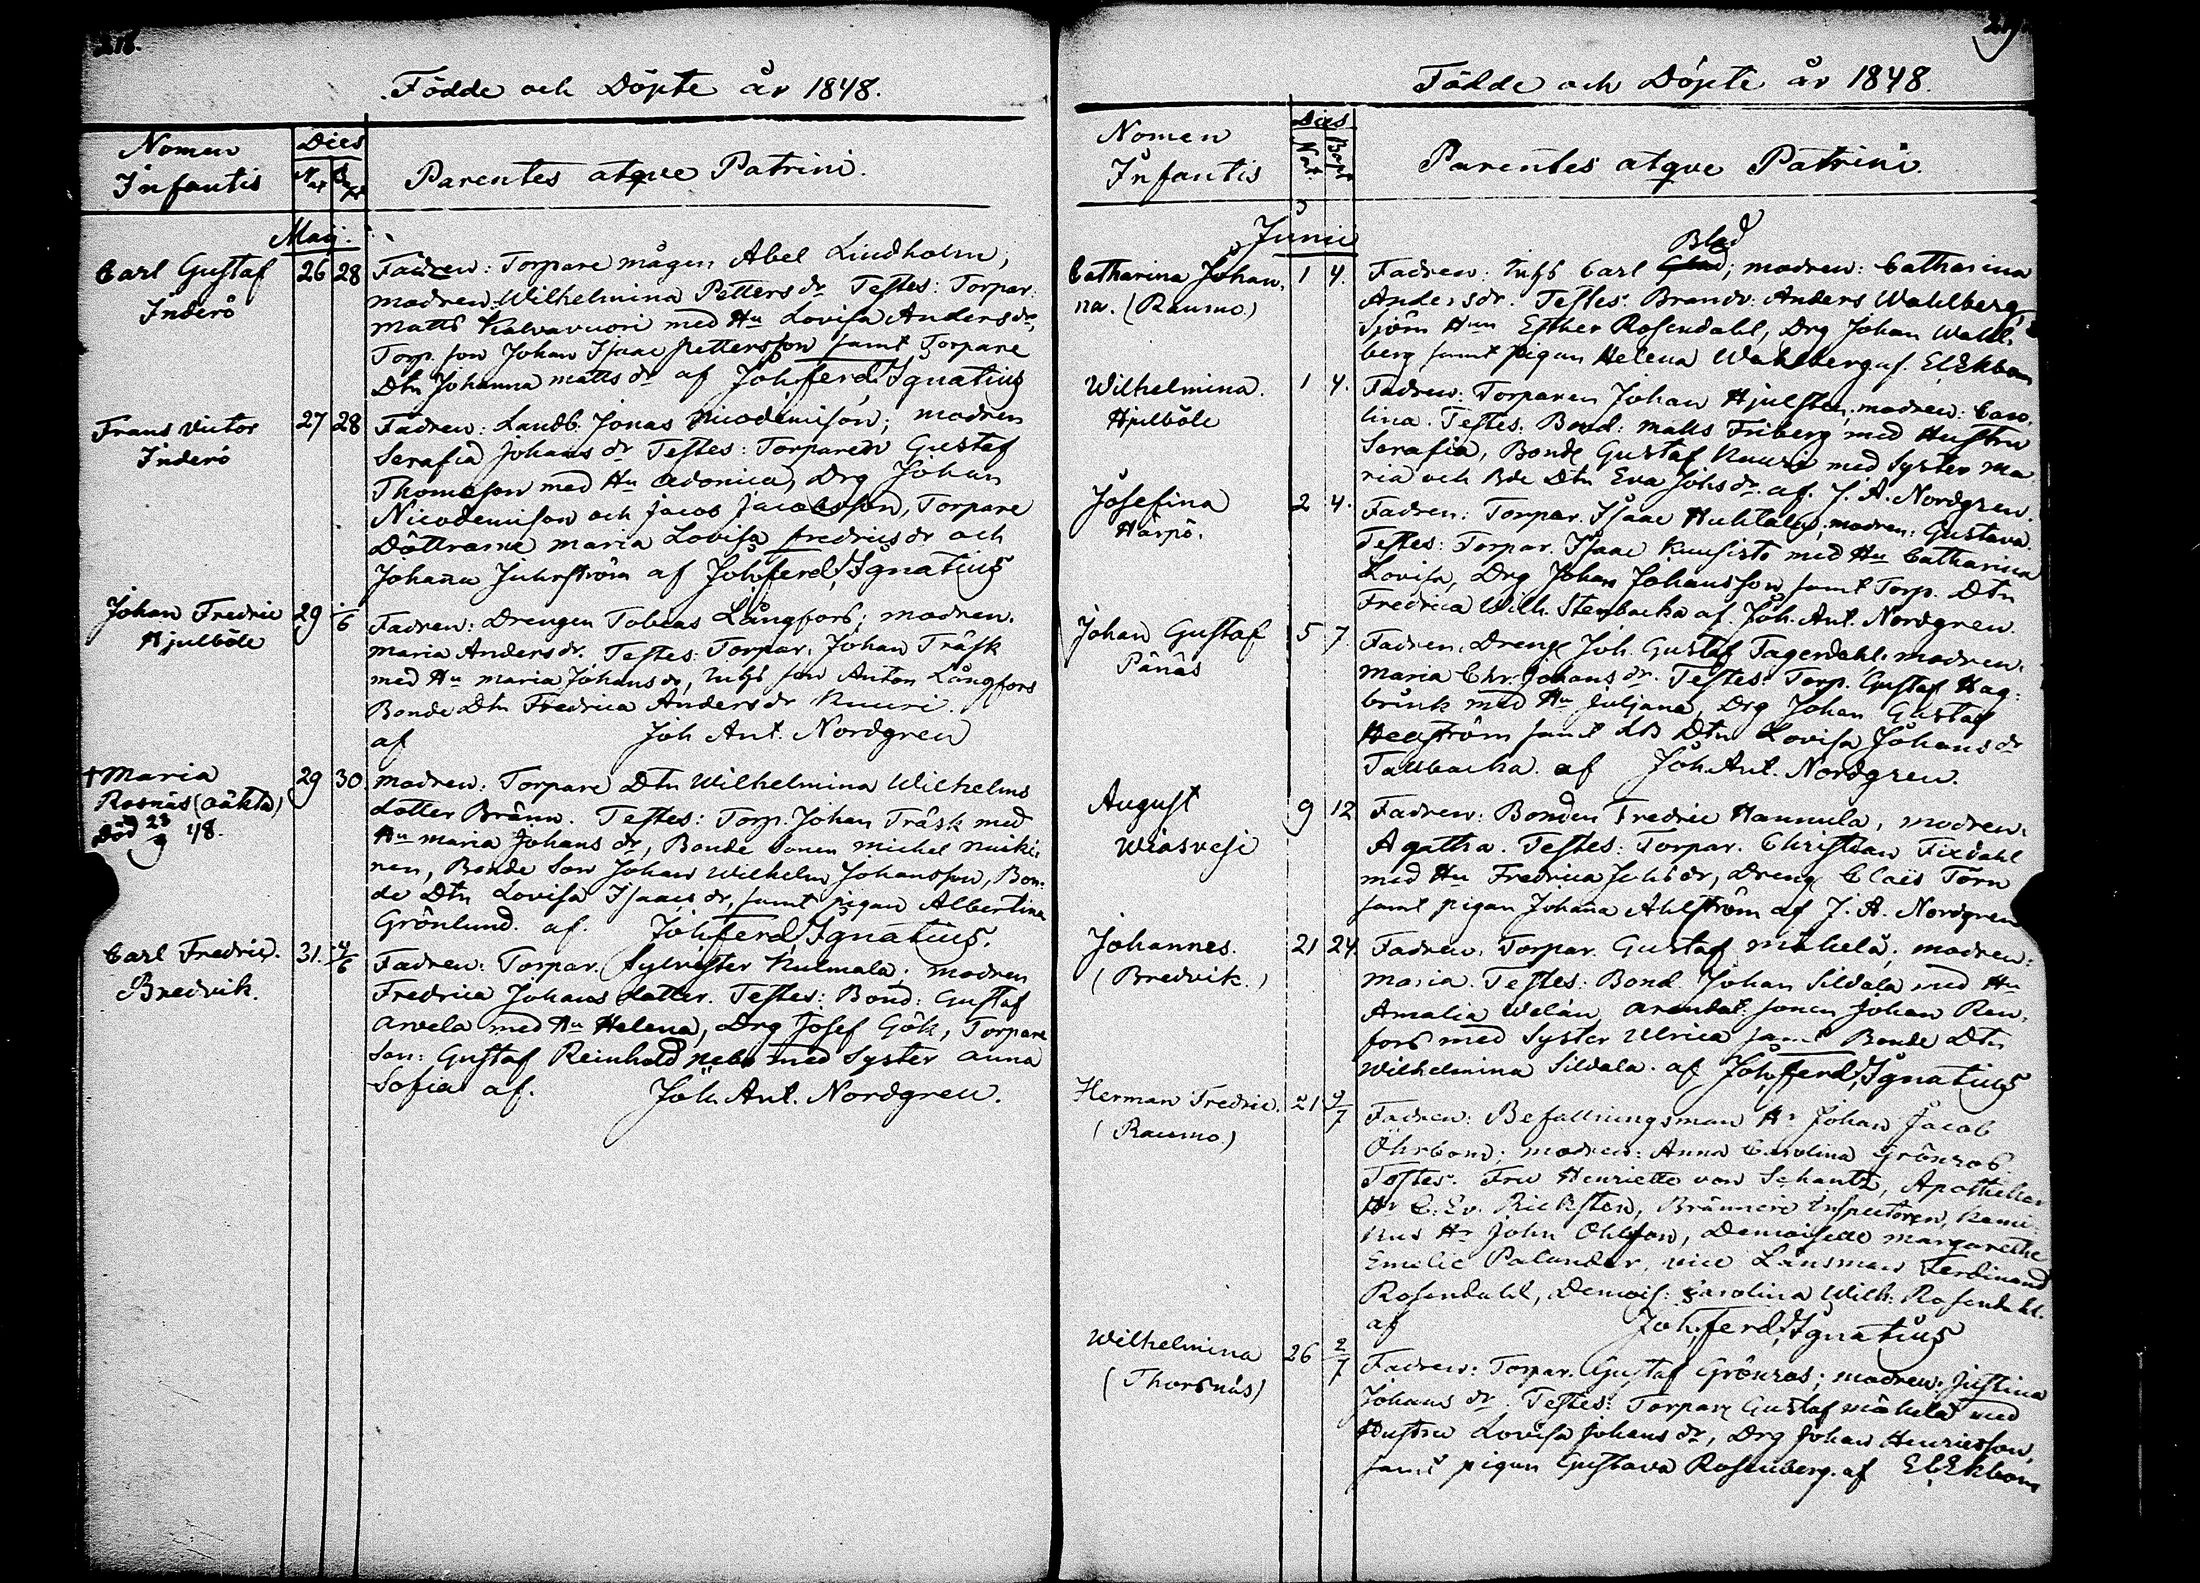 218.
Födde och Döpte år 1848.
Nomen Infantis
Dies
Nat Bapt
Parentes atqve Patrini.
Maij.
Carl Gustaf
Inderö
26 28
Fadren: Torpare mågen Abel Lindholm,
modren Wilhelmina Petters dr Testes: Torpar.
Matts Kalvavuori med Hu Lovisa Anders dr,
Torp. son Johan Isaac Pettersson samt Torpare
Dtn Johanna Matts dr af Joh. Ferd. Ignatius
Frans Victor
Inderö
27 28
Fadren: Landb. Jonas Nicodemison; modren
Serafia Johans dr Testes: Torparen Gustaf
Thomasson med Hu Adonica, Drg Johan
Nicodemison och Jacob Jacobsson, Torpare
Döttrarne Maria Lovisa Fredrics dr och
Johanna Juhrström af Joh. Ferd. Ignatius
Johan Fredric
Hjulböle
29 /6
Fadren: Drengen Tobias Långfors; modren.
Maria Anders dr. Testes: Torpar. Johan Träsk
med Hu Maria Johans dr, Inhs son Anton Långfors
Bonde Dtn Fredrica Anders dr Knuri.
af Joh Ant. Nordgren
+ Maria
Rosnäs (oäkta)
Död 23/9 48.
29 30
modren: Torpare Dtn Wilhelmina Wilhelms
dotter Bränn. Testes: Torp. Johan Träsk med
Hu Maria Johans dr, Bonde sonen Michel Nuiki
nen, Bonde Son Johan Wilhelm Johansson, Bon-
de Dtn Lovisa Isaacs dr, samt pigan Albertina
Grönlund. af. Joh. Ferd. Ignatius.
Carl Fredric.
Bredvik.
31. 4/6
Fadren: Torpar. Sylvester Kulmala; modren
Fredrica Johans dotter. Testes: Bond: Gustaf
Arvela med Hu Helena, Drg Josef Gök, Torpare
Son: Gustaf Reinhold med Syster Anna
Sofia af. Joh. Ant. Nordgren.
219
Födde och Döpte år 1848.
Nomen Infantis
Dies
Nat Bapt
Parentes atqve Patrini.
Junii
Blad
Catharina Johan-
na. (Raumo)
1 4.
Fadren: Inhs Carl Glad; modren: Catharina
Anders dr. Testes: Brandv. Anders Wahlberg,
Sjöm Hun Esther Rosendahl, Drg Johan Wahl-
berg samt pigan Helena Wahlberg af. El. Ekbom
Wilhelmina.
Hjulböle
1 4.
Fadren: Torparen Johan Hjulsten; modren: Caro-
lina. Testes. Bond: Matts Friberg med Hustru
Serafia, Bonde Gustaf Knuri med Syster Ma
ria och Bde Dtn Eva Johs dr. af. J. A. Nordgren.
Josefina
Härpö.
2 4.
Fadren: Torpar. Isaac Huhtala, modren: Gustava.
Testes: Torpar. Isaac Kuusisto med Hu Catharina
Lovisa, Drg Johan Johansson, samt Torp. Dtn
Fredrica Wilh. Stenbacka af. Joh. Ant. Nordgren.
Johan Gustaf
Pånäs
5 7.
Fadren. Dreng Joh. Gustaf Fagerdahl; modren.
Maria Chr. Johans dr. Testes: Torp. Gustaf Hag-
brink med Hu Juljana, Drg Johan Gustaf
Hegström samt LB Dtn Lovisa Johans dr
Tallbacka. af Joh. Ant. Nordgren.
August
Wiasvesi
9 12
Fadren: Bonden Fredric Hannula, modren:
Agatha. Testes: Torpar. Christian Fixdahl
med Hu Fredrica Johs dr, Dreng Claës Törn
samt pigan Johana Ahlström af J. A. Nordgren
Johannes.
(Bredvik.)
21 24.
Fadren. Torpar Gustaf Mikelä; modren:
Maria. Testes: Bond. Johan Sildala med Hu
Amalia Welän Arendat. sonen Johan Ren-
fors med Syster Ulrica samt Bonde Dtn
Wilhelmina Sildala. af Joh. Ferd. Ignatius
Herman Fredric.
(Raumo.)
21 9/7
Fadren: Befallningsman Hr Johan Jacob
Öhrbom; modren: Anna Carolina Grönroos
Testes. Fru Henriette von Schantz, Apothekar
Hr C. Ev. Ricksten, Bränneri Inspectoren,
Hr John Ohlson, Demoiselle Margarethe
Emelie Palander, vice Länsman Ferdinand
Rosendahl, Demois: Carolina Wilh. Rosendahl.
af Joh. Ferd. Ignatius
Wilhelmina
(Thorsnäs)
26 2/7
Fadren: Torpar. Gustaf Grönroos; modren: Justina
Johans dr. Testes: Torpare Gustaf Mäkelä med
Hustru Lovisa Johans dr, Drg Johan Henricsson,
samt pigan Gustava Rosenberg. af El. Ekbom